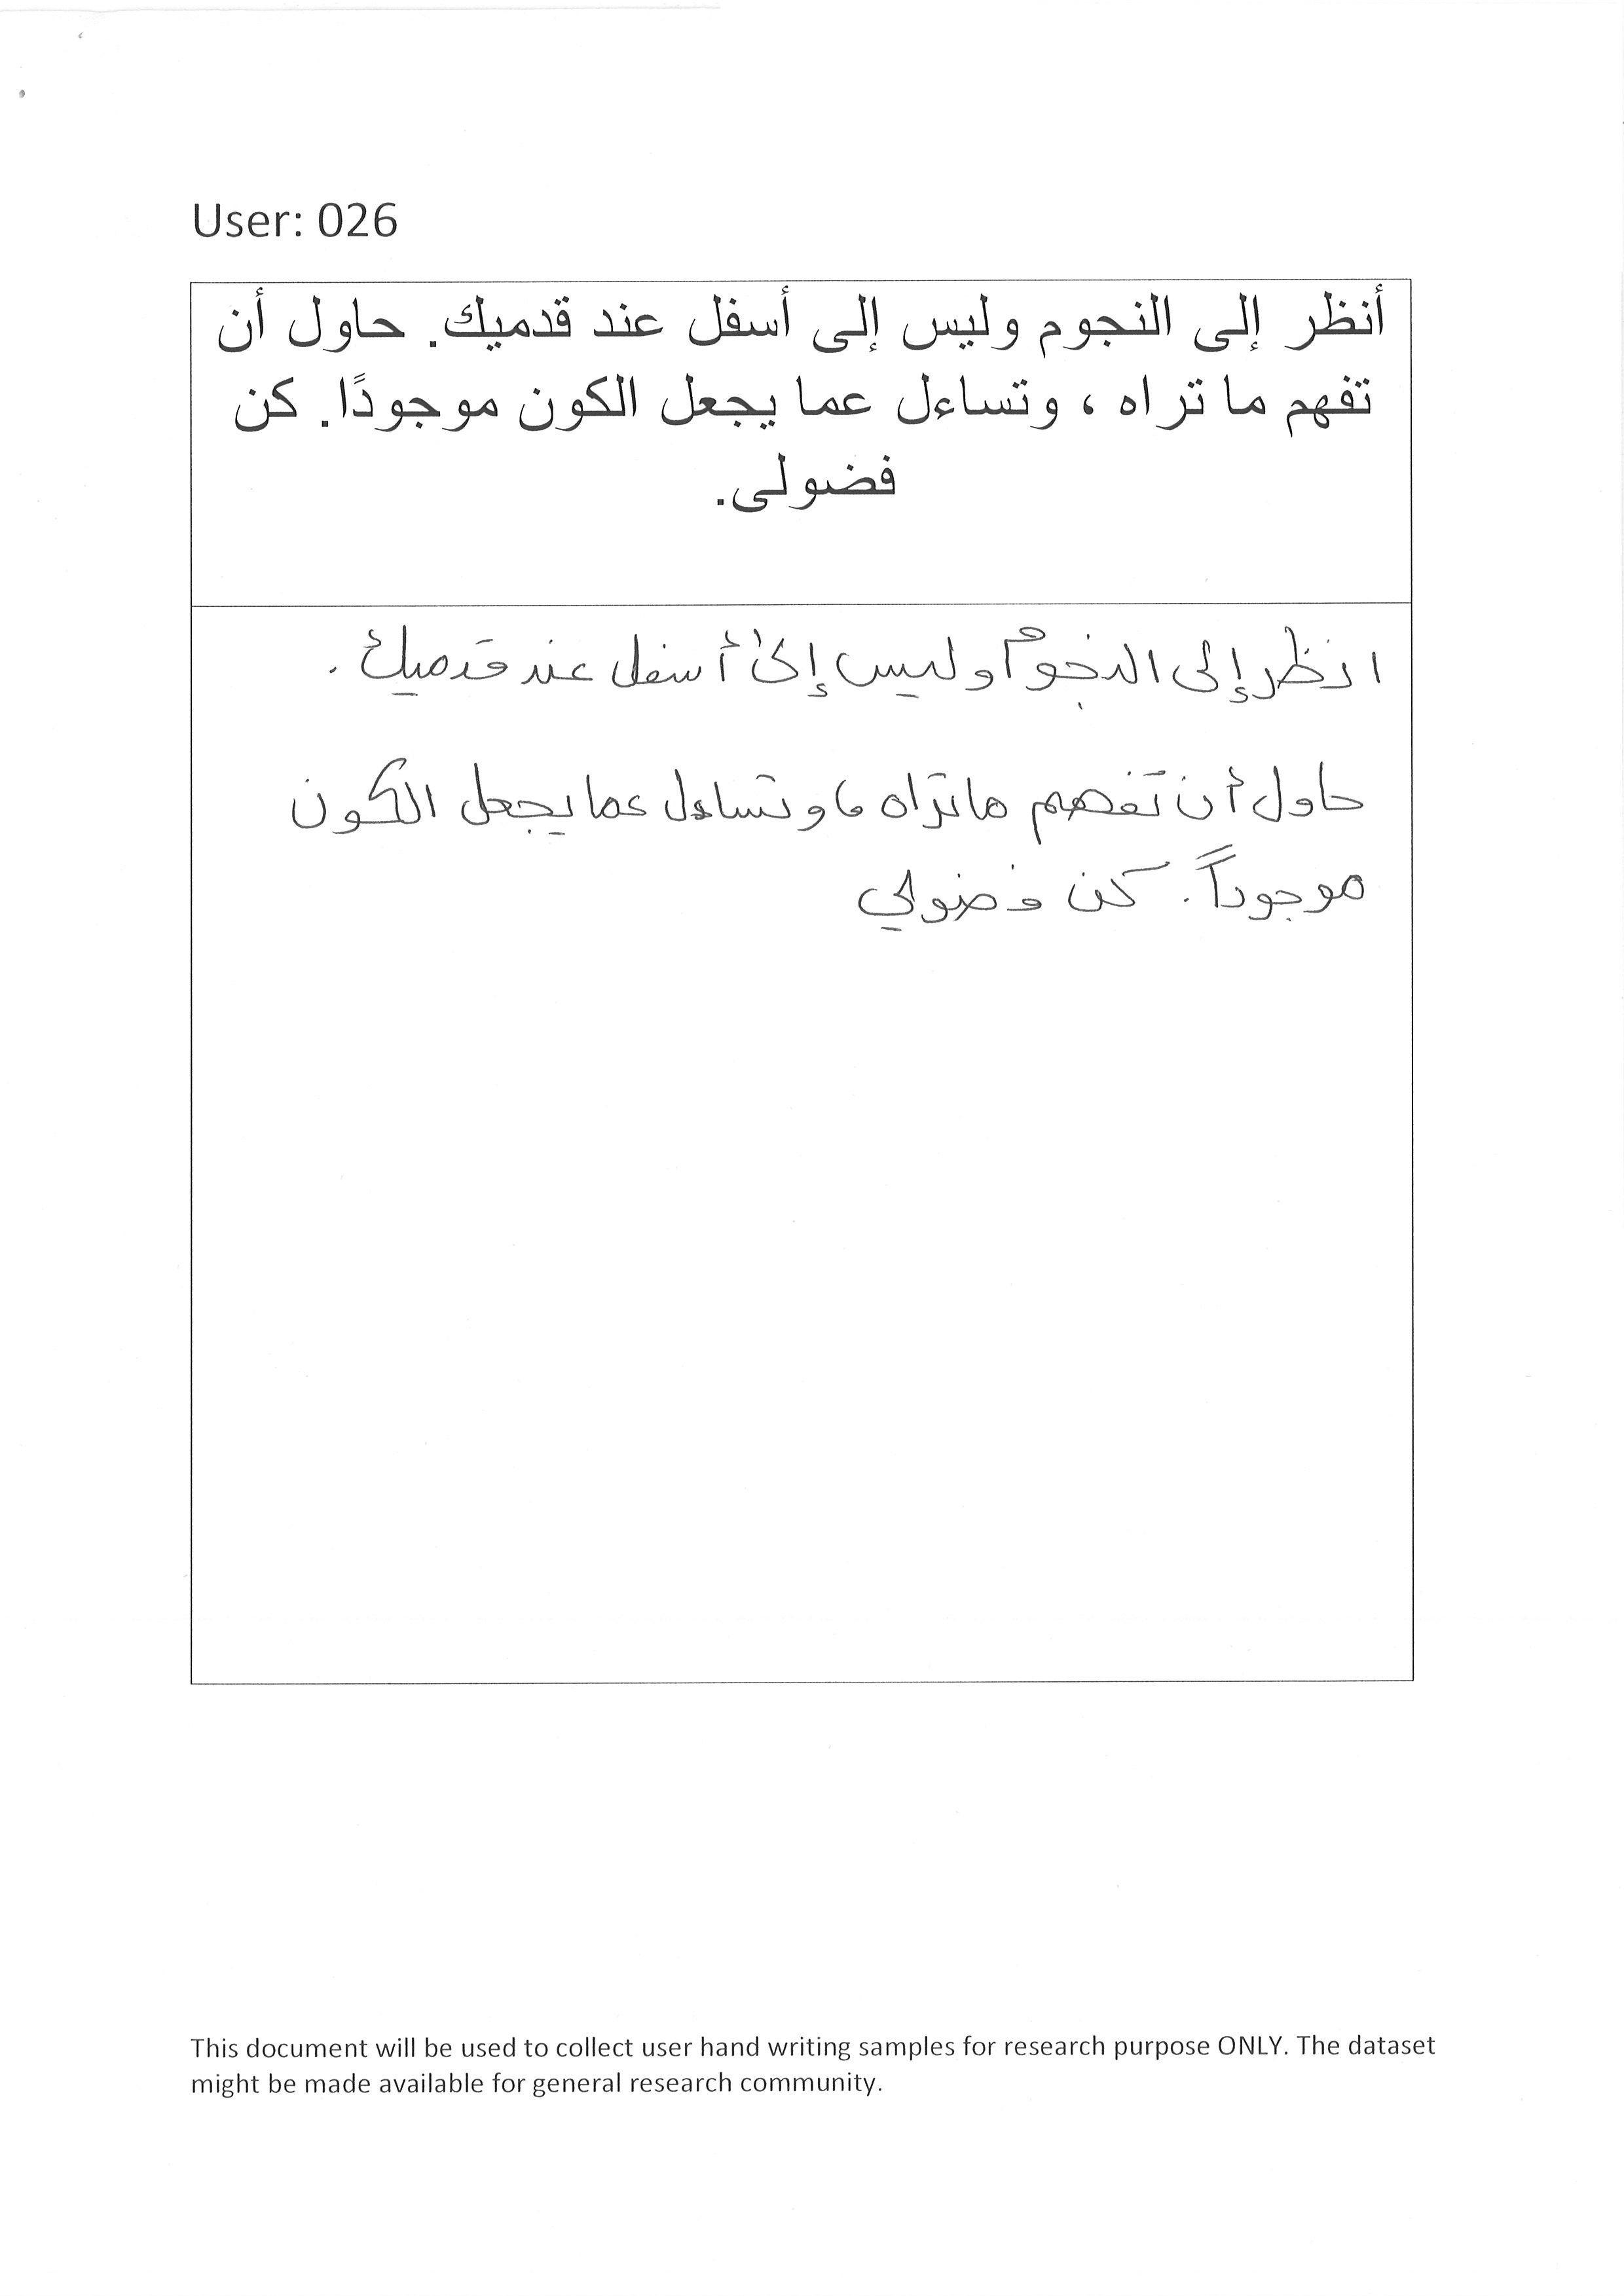 User: 026
أنظر إلى النجوم وليس إلى أسفل عند قدميك. حاول أن
تفهم ما تراه ، وتساءل عما يجعل الكون موجودًا. كن
فضولى.
انظر إلى النجوم وليس إلى أسفل عند قدميك .
حاول أن تفهم ما تراه ، وتساءل عما يجعل الكون
موجوداً . كن فضولي
This document will be used to collect user hand writing samples for research purpose ONLY. The dataset
might be made available for general research community.